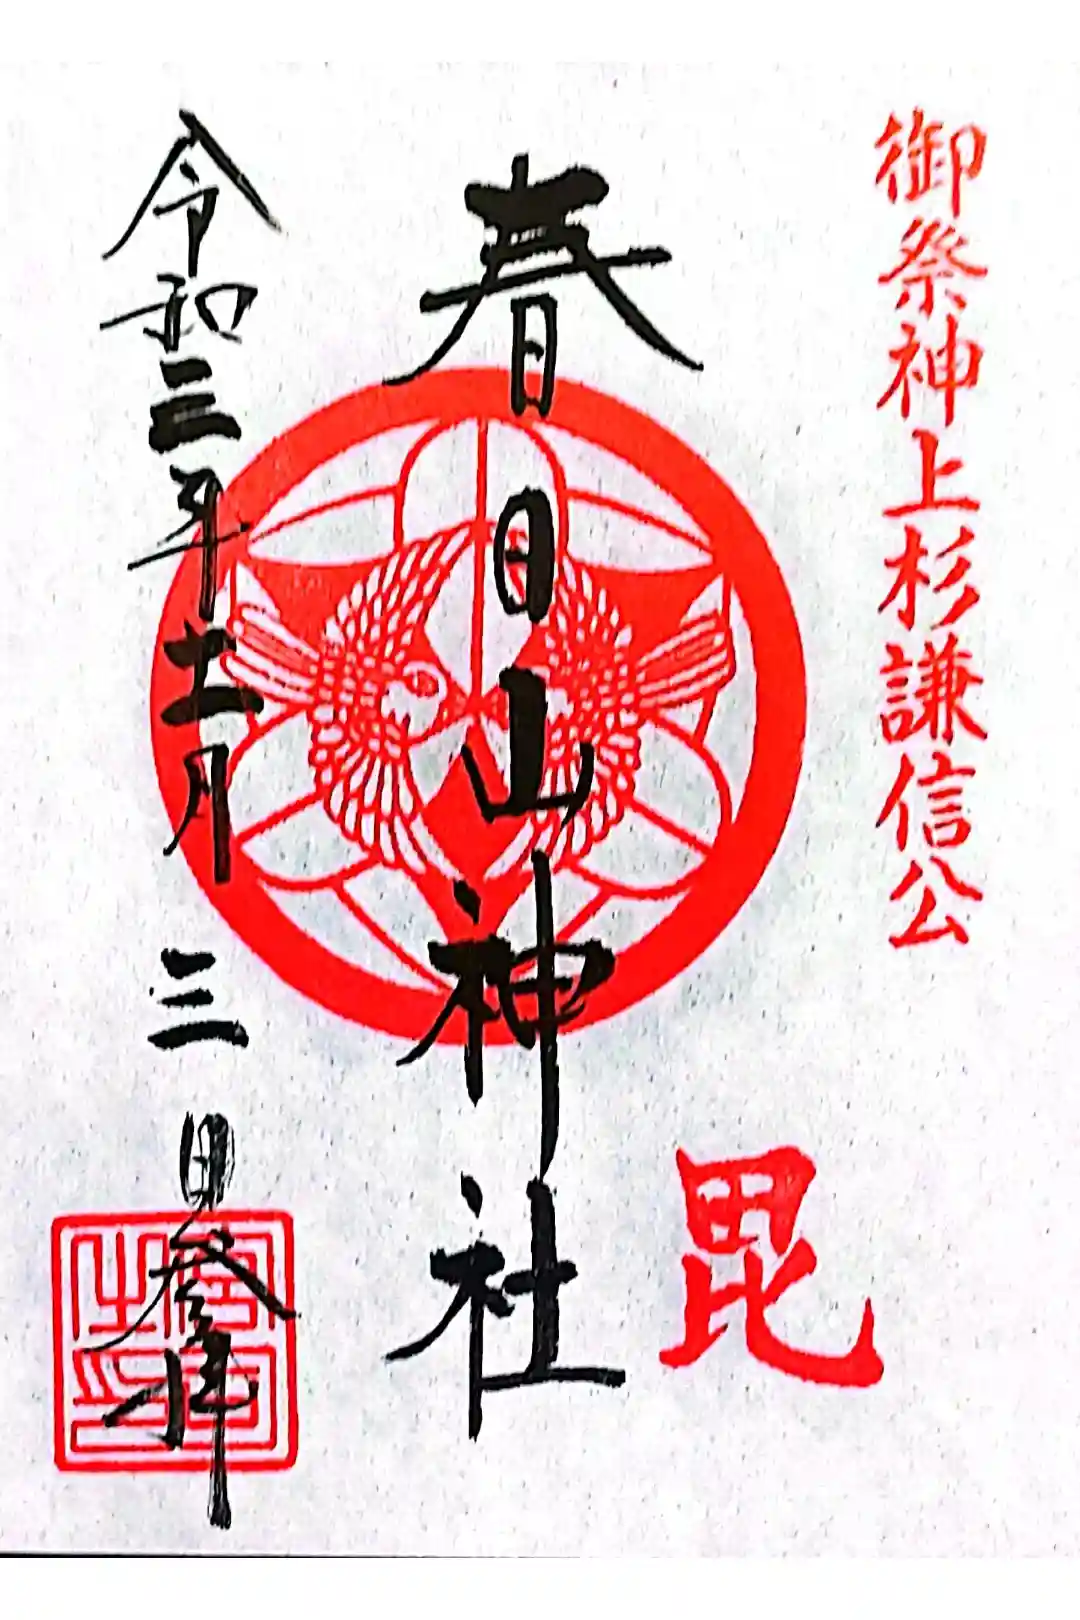 御祭神上杉謙信公
毘
春日山神社
令和三年十一月三日参拝